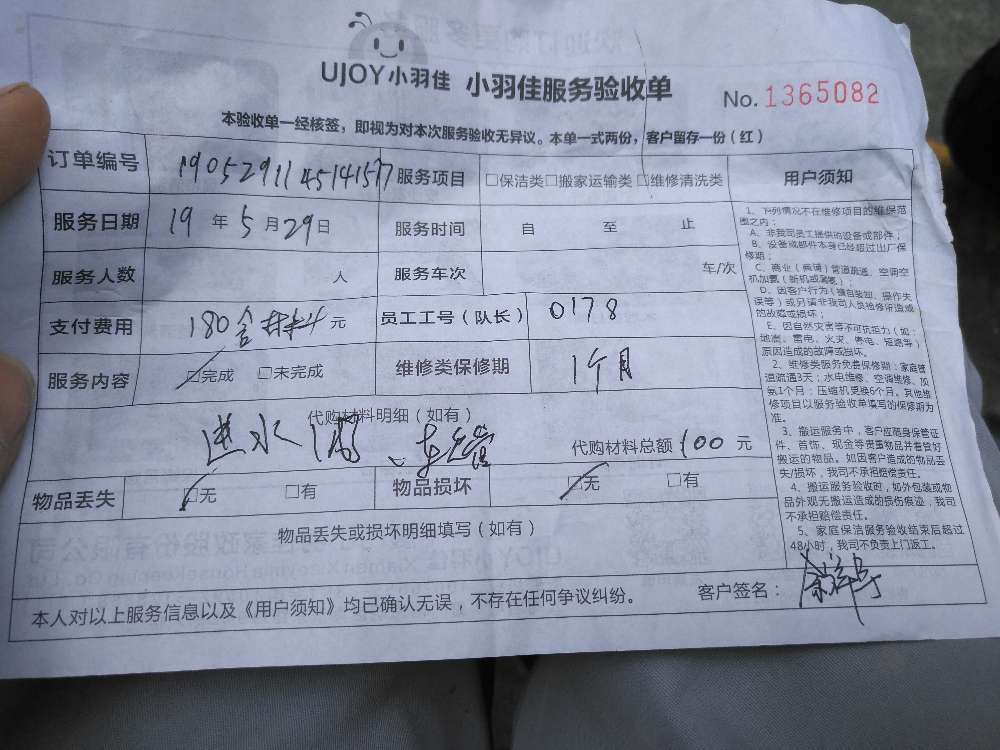 UJOY小羽佳 小羽佳服务验收单
No. 1365082
本验收单一经核签，即视为对本次服务验收无异议。本单一式两份，客户留存一份（红）
订单编号 19052911 45141517 服务项目 □保洁类□搬家运输类□维修清洗类
服务日期 19 年 5 月 29 日 服务时间 自 至 止
服务人数 人 服务车次 车/次
支付费用 180含材料 元 员工工号（队长） 0178
服务内容 □完成 □未完成 维修类保修期 1个月
代购材料明细（如有）
进水阀、 代购材料总额 100 元
物品丢失 □无 □有 物品损坏 □无 □有
物品丢失或损坏明细填写（如有）
本人对以上服务信息以及《用户须知》均已确认无误，不存在任何争议纠纷。 客户签名：
用户须知
1、下列情况不在维修项目的维保范
围之内：
A、非我司员工提供的设备或部件；
B、设备或部件本身已经超过出厂保
修期；
C、商业（商铺）管道疏通、空调空
机加氟（新机或漏氟）；
D、因客户行为（擅自装卸、操作失
误等）或另请非我司人员检修所造成
的故障或损坏；
E、因自然灾害等不可抗拒力（如：
地震、雷电、火灾、停电、短路等）
原因造成的故障或损坏。
2、维修类服务免费保修期：家庭管
道疏通3天；水电维修、空调维修、加
氨1个月；压缩机更换6个月。其他维
修项目以服务验收单填写的保修期为
准。
3、搬运服务中，客户应随身保管证
件、首饰、现金等贵重物品并看管好
搬运的物品。如因客户造成的物品丢
失/损坏，我司不承担赔偿责任。
4、搬运服务验收时，如外包装或物
品外观无搬运造成的损伤痕迹，我司
不承担赔偿责任。
5、家庭保洁服务验收结束后超过
48小时，我司不负责上门返工。